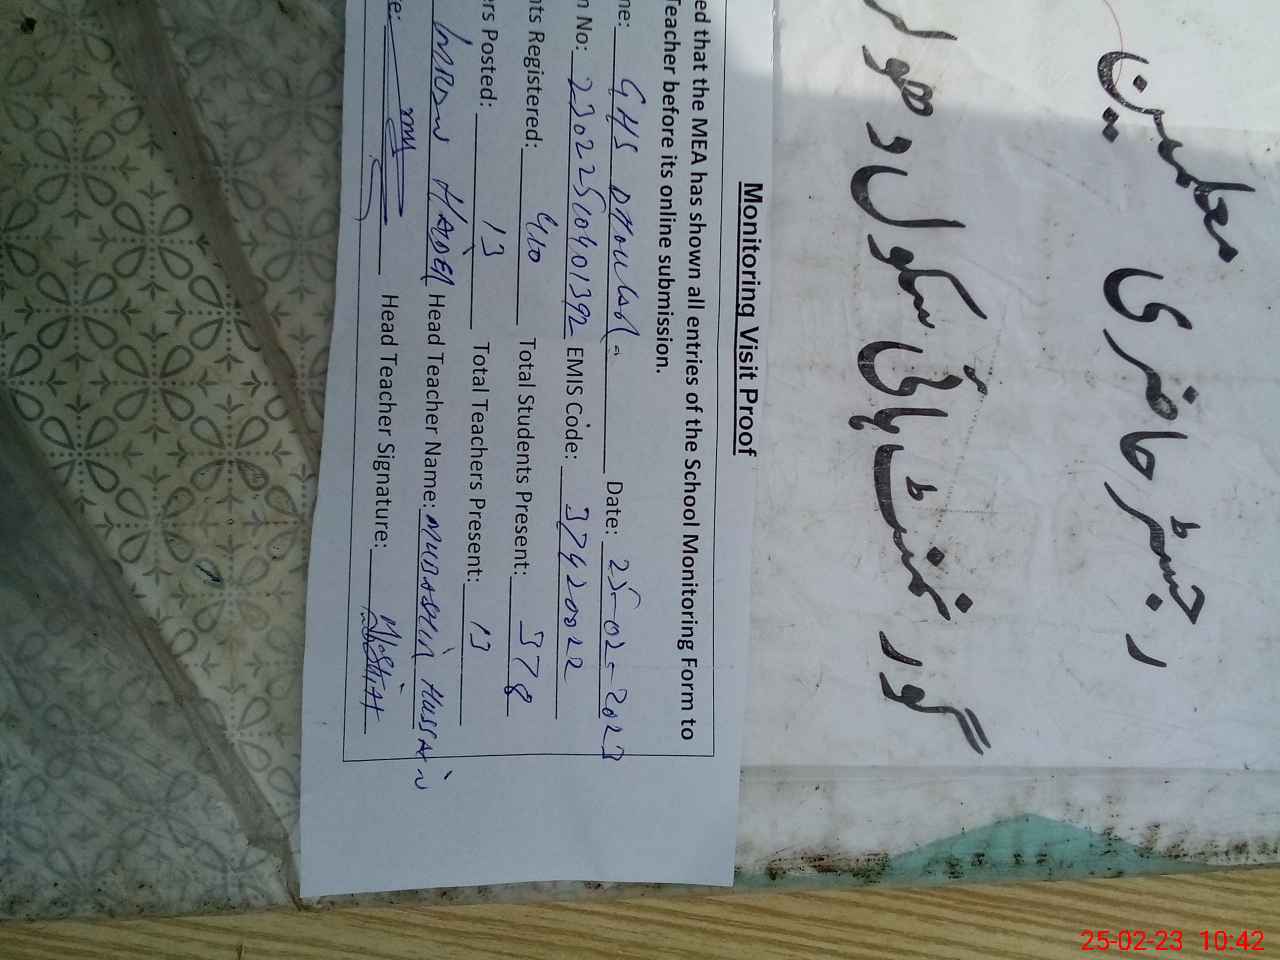 رجسٹر حاضری معلمین
گورنمنٹ ہائی سکول ڈھولر
Monitoring Visit Proof
ed that the MEA has shown all entries of the School Monitoring Form to
Teacher before its online submission.
ne: GHS Dhoular. Date: 25-02-2023
n No: 23022510401392 EMIS Code: 37420022
nts Registered: 410 Total Students Present: 378
rs Posted: 13 Total Teachers Present: 13
HAIDER Head Teacher Name: MUBASHIR HUSSAIN
e: Head Teacher Signature:
25-02-23 10:42